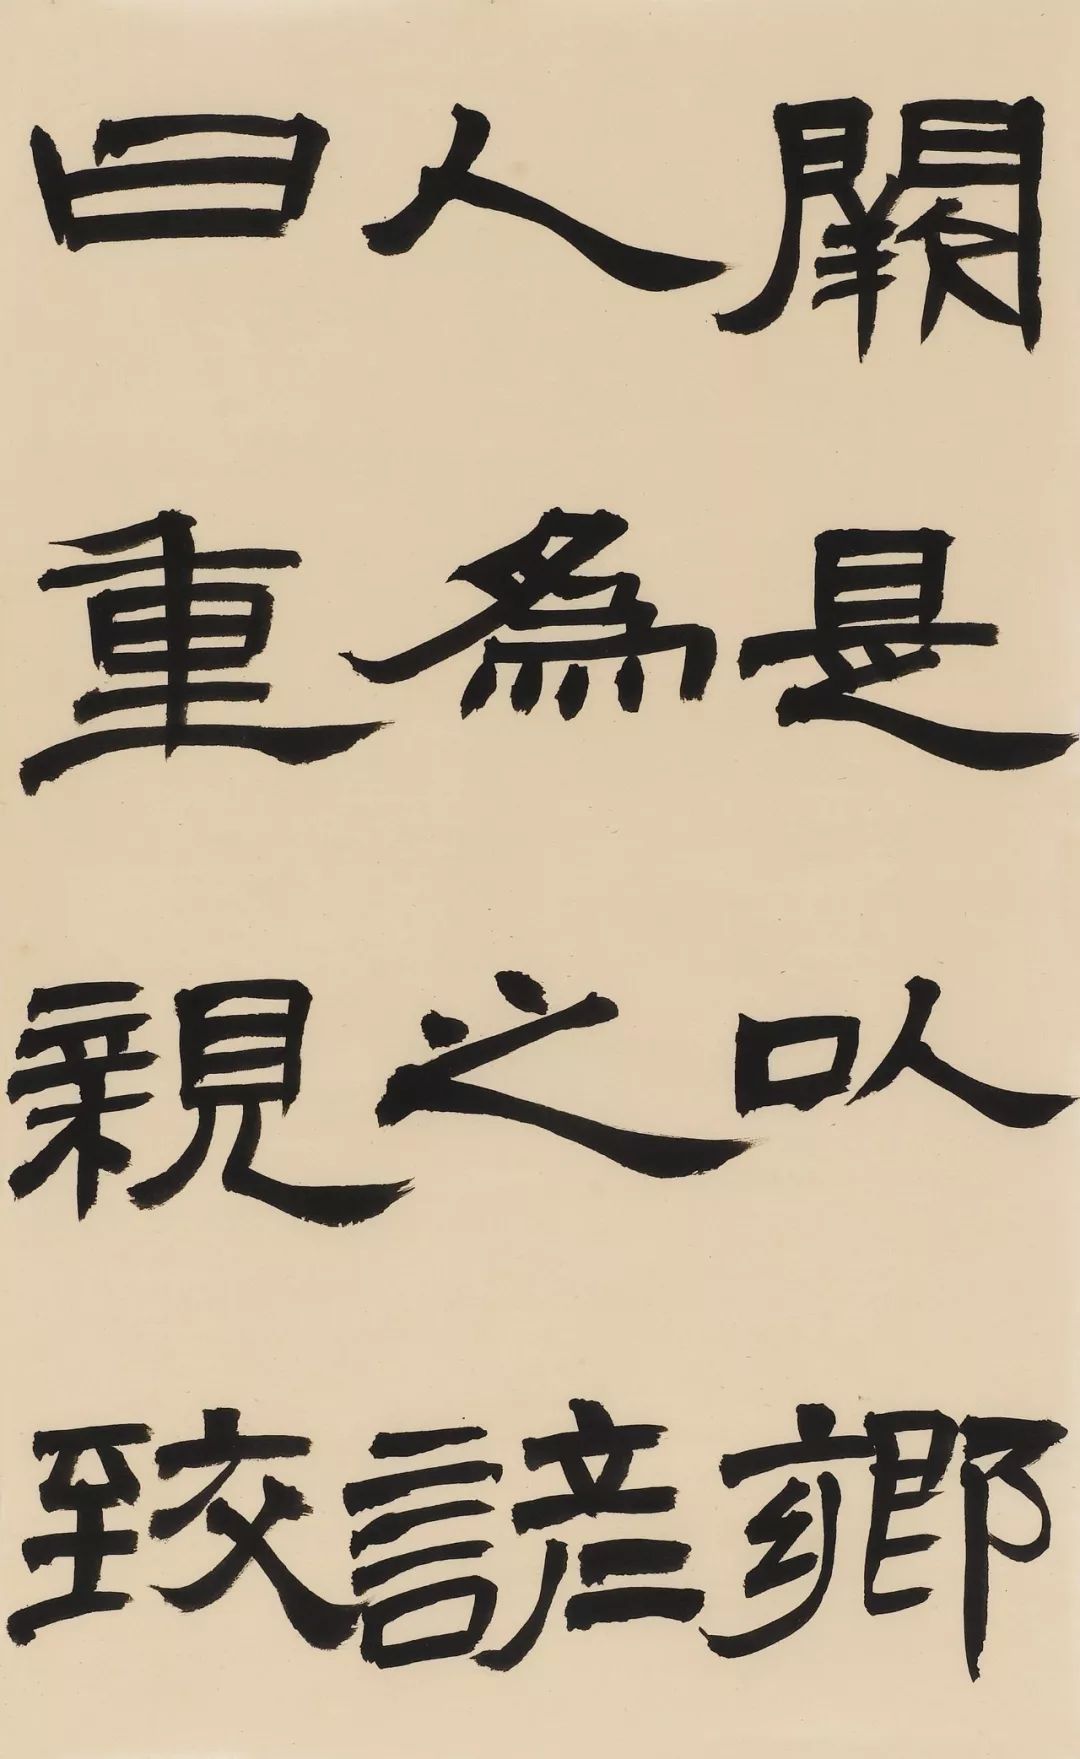 闕是以鄉
人為之諺
曰重親致